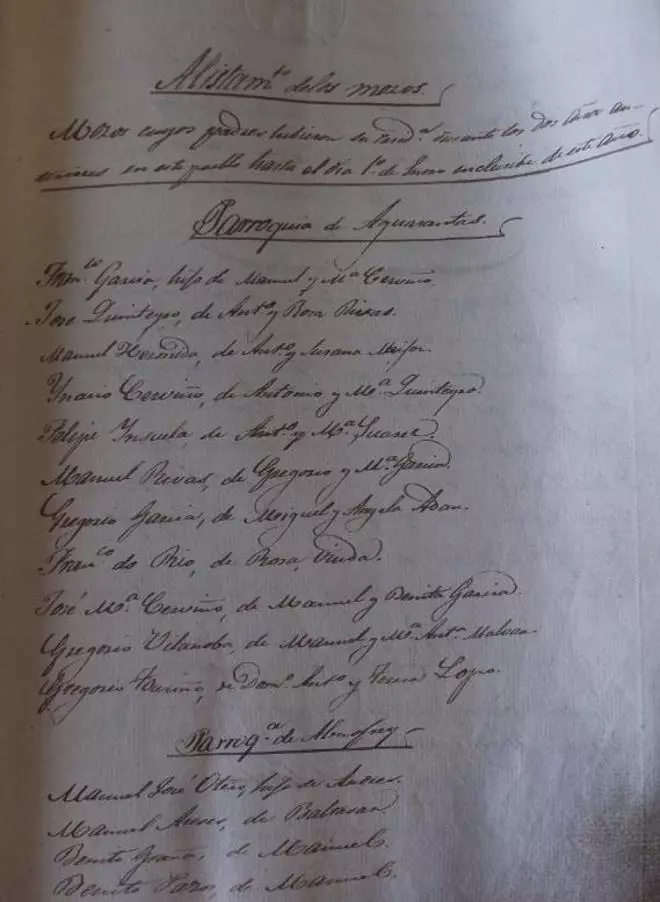 Alistamto de los mozos.
Mozos cuyos padres hubieron su resida durante los dos años an-
teriores en este pueblo hasta el dia 1º de Enero inclusibe de este año.
Parroquia de Aguasantas.
Franco Garcia, hijo de Manuel y Mª Cerviño.
José Quinteyro, de Antº y Rosa Rivas.
Manuel Hermida, de Antº y Susana
Ynacio Cerviño, de Antonio y Mª Quinteyro.
Felipe Insuela, de Antº y Mª Suarez.
Manuel Rivas, de Gregorio y Mª Garcia.
Gregorio Garcia, de Miguel y Angela Adan.
Franco do Rio, de Rosa, Viuda.
José Mª Cerviño, de Manuel y Benita Garcia.
Gregorio Vilanoba, de Manuel y Mª Antª Malvar.
Gregorio de Domº Antº y Teresa Lopo.
Parroqª de Almofrey
Manuel José Otero, hijo de Andres.
Manuel de Baltasar.
Benito Graña, de Manuel.
Benito Pazos, de Manuel.